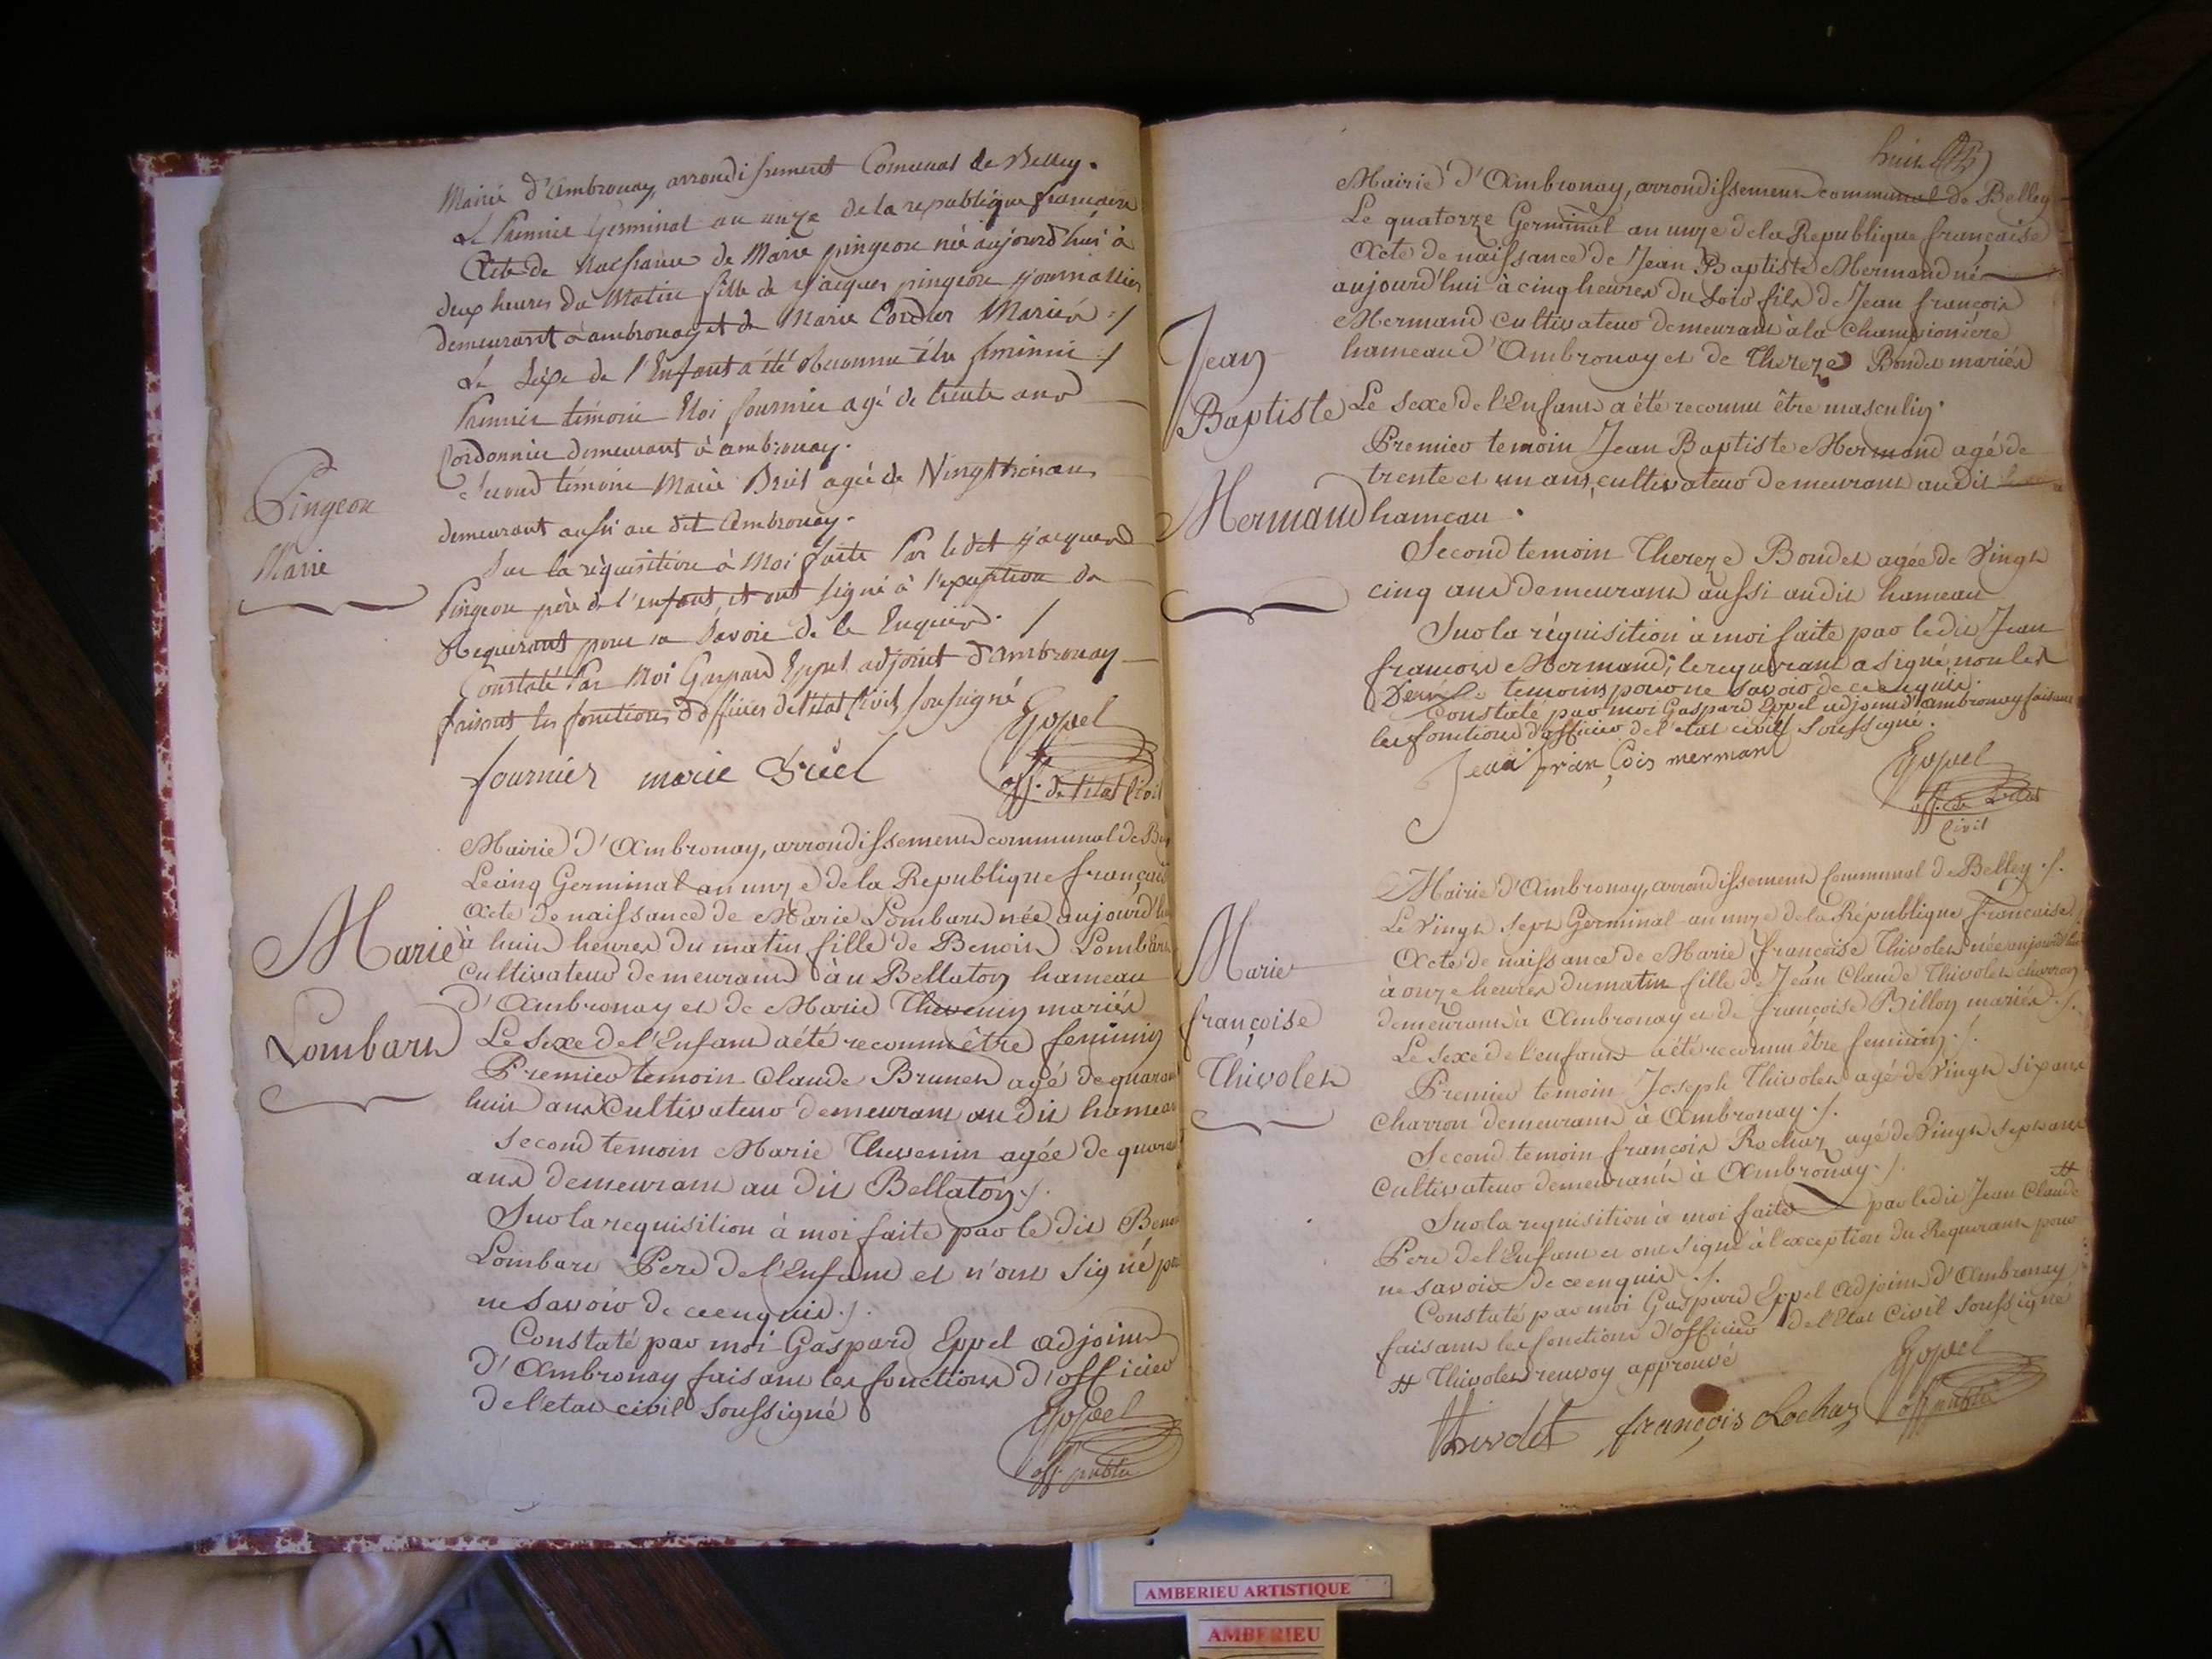 Mairie d'Ambronay, arrondissement Comunal de Belley.
Le Premier Germinal an onze de la republique francaise
Acte de Naissance de Marie pingeon née aujourd'hui à
deux heures du Matin fille de Jacques pingeon journallier
demeurant à ambronay et de Marie Cordier Mariés ./
Le Sexe de l'Enfant a été Reconnu être féminin ./
Premier témoin Eloi fournier agé de trente ans
Cordonnier demeurant à ambronay.
Second témoin Marie Bruel agée de Vingt trois ans
demeurant aussi au dit Ambronay.
Pingeon
Marie
Sur la réquisition à Moi faite Par le dit jacques
Pingeon père de l'enfant, et ont signé à l'exception du
Requerant pour ne Savoir de le Enquierd. /
Constaté Par Moi Gaspard Eppel adjoint d'ambronay
faisant les fonctions d'officier de l'état Civil soussigné
fournier marie Bruel
Eppel
off. de l'état Civil
Mairie d'Ambronay, arrondissement communal de
Le cinq Germinal an onze de la Republique française
Acte de naissance de Marie Lombard née aujourd'hui
à huit heures du matin fille de Benoit Lombard
cultivateur demeurant au Bellaton hameau
d'Ambronay et de Marie Thevenin mariés
Le Sexe de l'Enfant a été reconnu être feminin
Premier temoin Claude Brunet agé de quarante
huit ans Cultivateur demeurant au dit hameau
Second temoin Marie Thevenin agée de quarante
ans demeurant au dit Bellaton ./.
Marie
Lombard
Sur la requisition à moi faite par le dit Benoit
Lombard Pere de l'Enfant et n'ont signé pour
ne Savoir de ce enquis ./.
Constaté par moi Gaspard Eppel adjoint
d'Ambronay faisant les fonctions d'officier
de l'etat civil soussigné
Eppel
off. public
huit
Mairie d'Ambronay, arrondissement communal de Belley
Le quatorze Germinal an onze de la Republique française
Acte de naissance de Jean Baptiste Mermand né
aujourd'hui à cinq heures du Soir fils de Jean françois
Mermand Cultivateur demeurant à la Championiere
hameau d'Ambronay et de Thereze Bondet mariés
Le Sexe de l'Enfant a été reconnu être masculin.
Premier temoin Jean Baptiste Mermand agé de
trente et un ans, cultivateur demeurant audit
hameau.
Jean
Baptiste
Mermand
Second temoin Thereze Bondet agée de Vingt
cinq ans demeurant aussi audit hameau
Sur la réquisition à moi faite par le dit Jean
francois Mermand, le requerant a signé, non les
Deux temoins pour ne savoir de ce enquis.
Constaté par moi Gaspard Eppel adjoint d'ambronay faisant
les fonctions d'officier de l'etat civil soussigné.
Jean françois merman
Eppel
off. de L'état
Civil
Mairie d'Ambronay, arrondissement Communal de Belley ./.
Le Vingt Sept Germinal an onze de la République française
Acte de naissance de Marie françoise Thivolet née aujourd'hui
à onze heures du matin fille de Jean Claude Thivolet charron
demeurant à Ambronay et de françoise Billon mariés ./.
Le Sexe de l'enfant a été reconnu être feminin ./.
Premier temoin Joseph Thivolet agé de Vingt six ans
Charron demeurant à Ambronay ./.
Second temoin françois Rochaz agé de Vingt sept ans
Cultivateur demeurant à Ambronay ./.
Marie
françoise
Thivolet
Sur la requisition à moi faite par le dit Jean Claude #
Pere de l'Enfant et ont signé à l'exception du Requerant pour
ne savoir de ce enquis ./.
Constaté par moi Gaspard Eppel Adjoint d'Ambronay
faisant les fonctions d'officier de l'Etat Civil soussigné
# Thivolet renvoy approuvé
Eppel
off public
thivolet françois Rochaz
AMBERIEU ARTISTIQUE
AMBERIEU